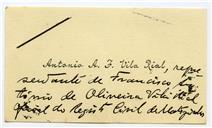 Antonio A. F. Vila Rial, repre
sentante de Francisco
de Oliveira Vila Rial
do Registo Civil de